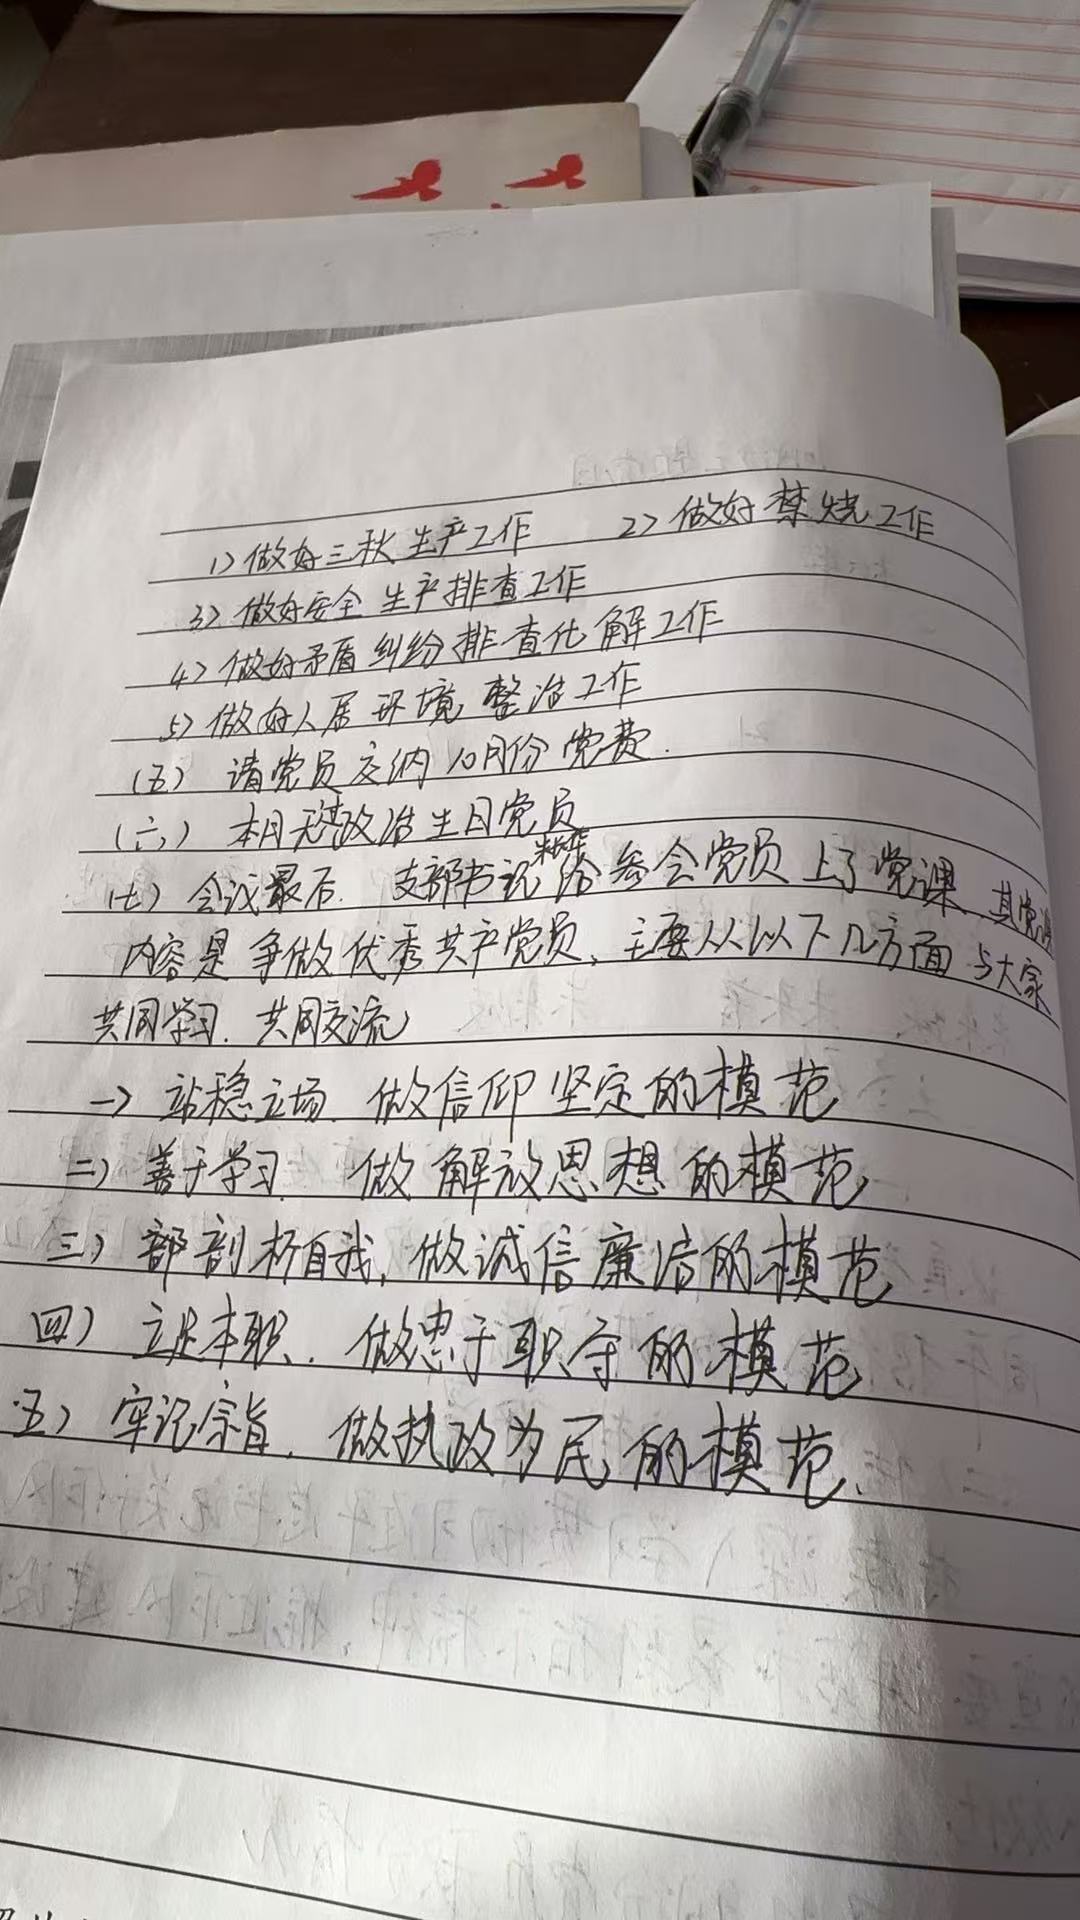 1) 做好三秋生产工作 2) 做好禁烧工作
3) 做好安全生产排查工作
4) 做好矛盾纠纷排查化解工作
5) 做好人居环境整治工作
(五) 请党员交纳10月份党费.
(六) 本月无政治生日党员
(七) 会议最后. 支部书记 给参会党员上了党课、其党课
内容是争做优秀共产党员、主要从以下几方面与大家
共同学习. 共同交流
一) 站稳立场. 做信仰坚定的模范
二) 善于学习. 做解放思想的模范
三) 部剖析自我, 做诚信廉洁的模范
四) 立足本职. 做忠于职守的模范
五) 牢记宗旨. 做执政为民的模范.